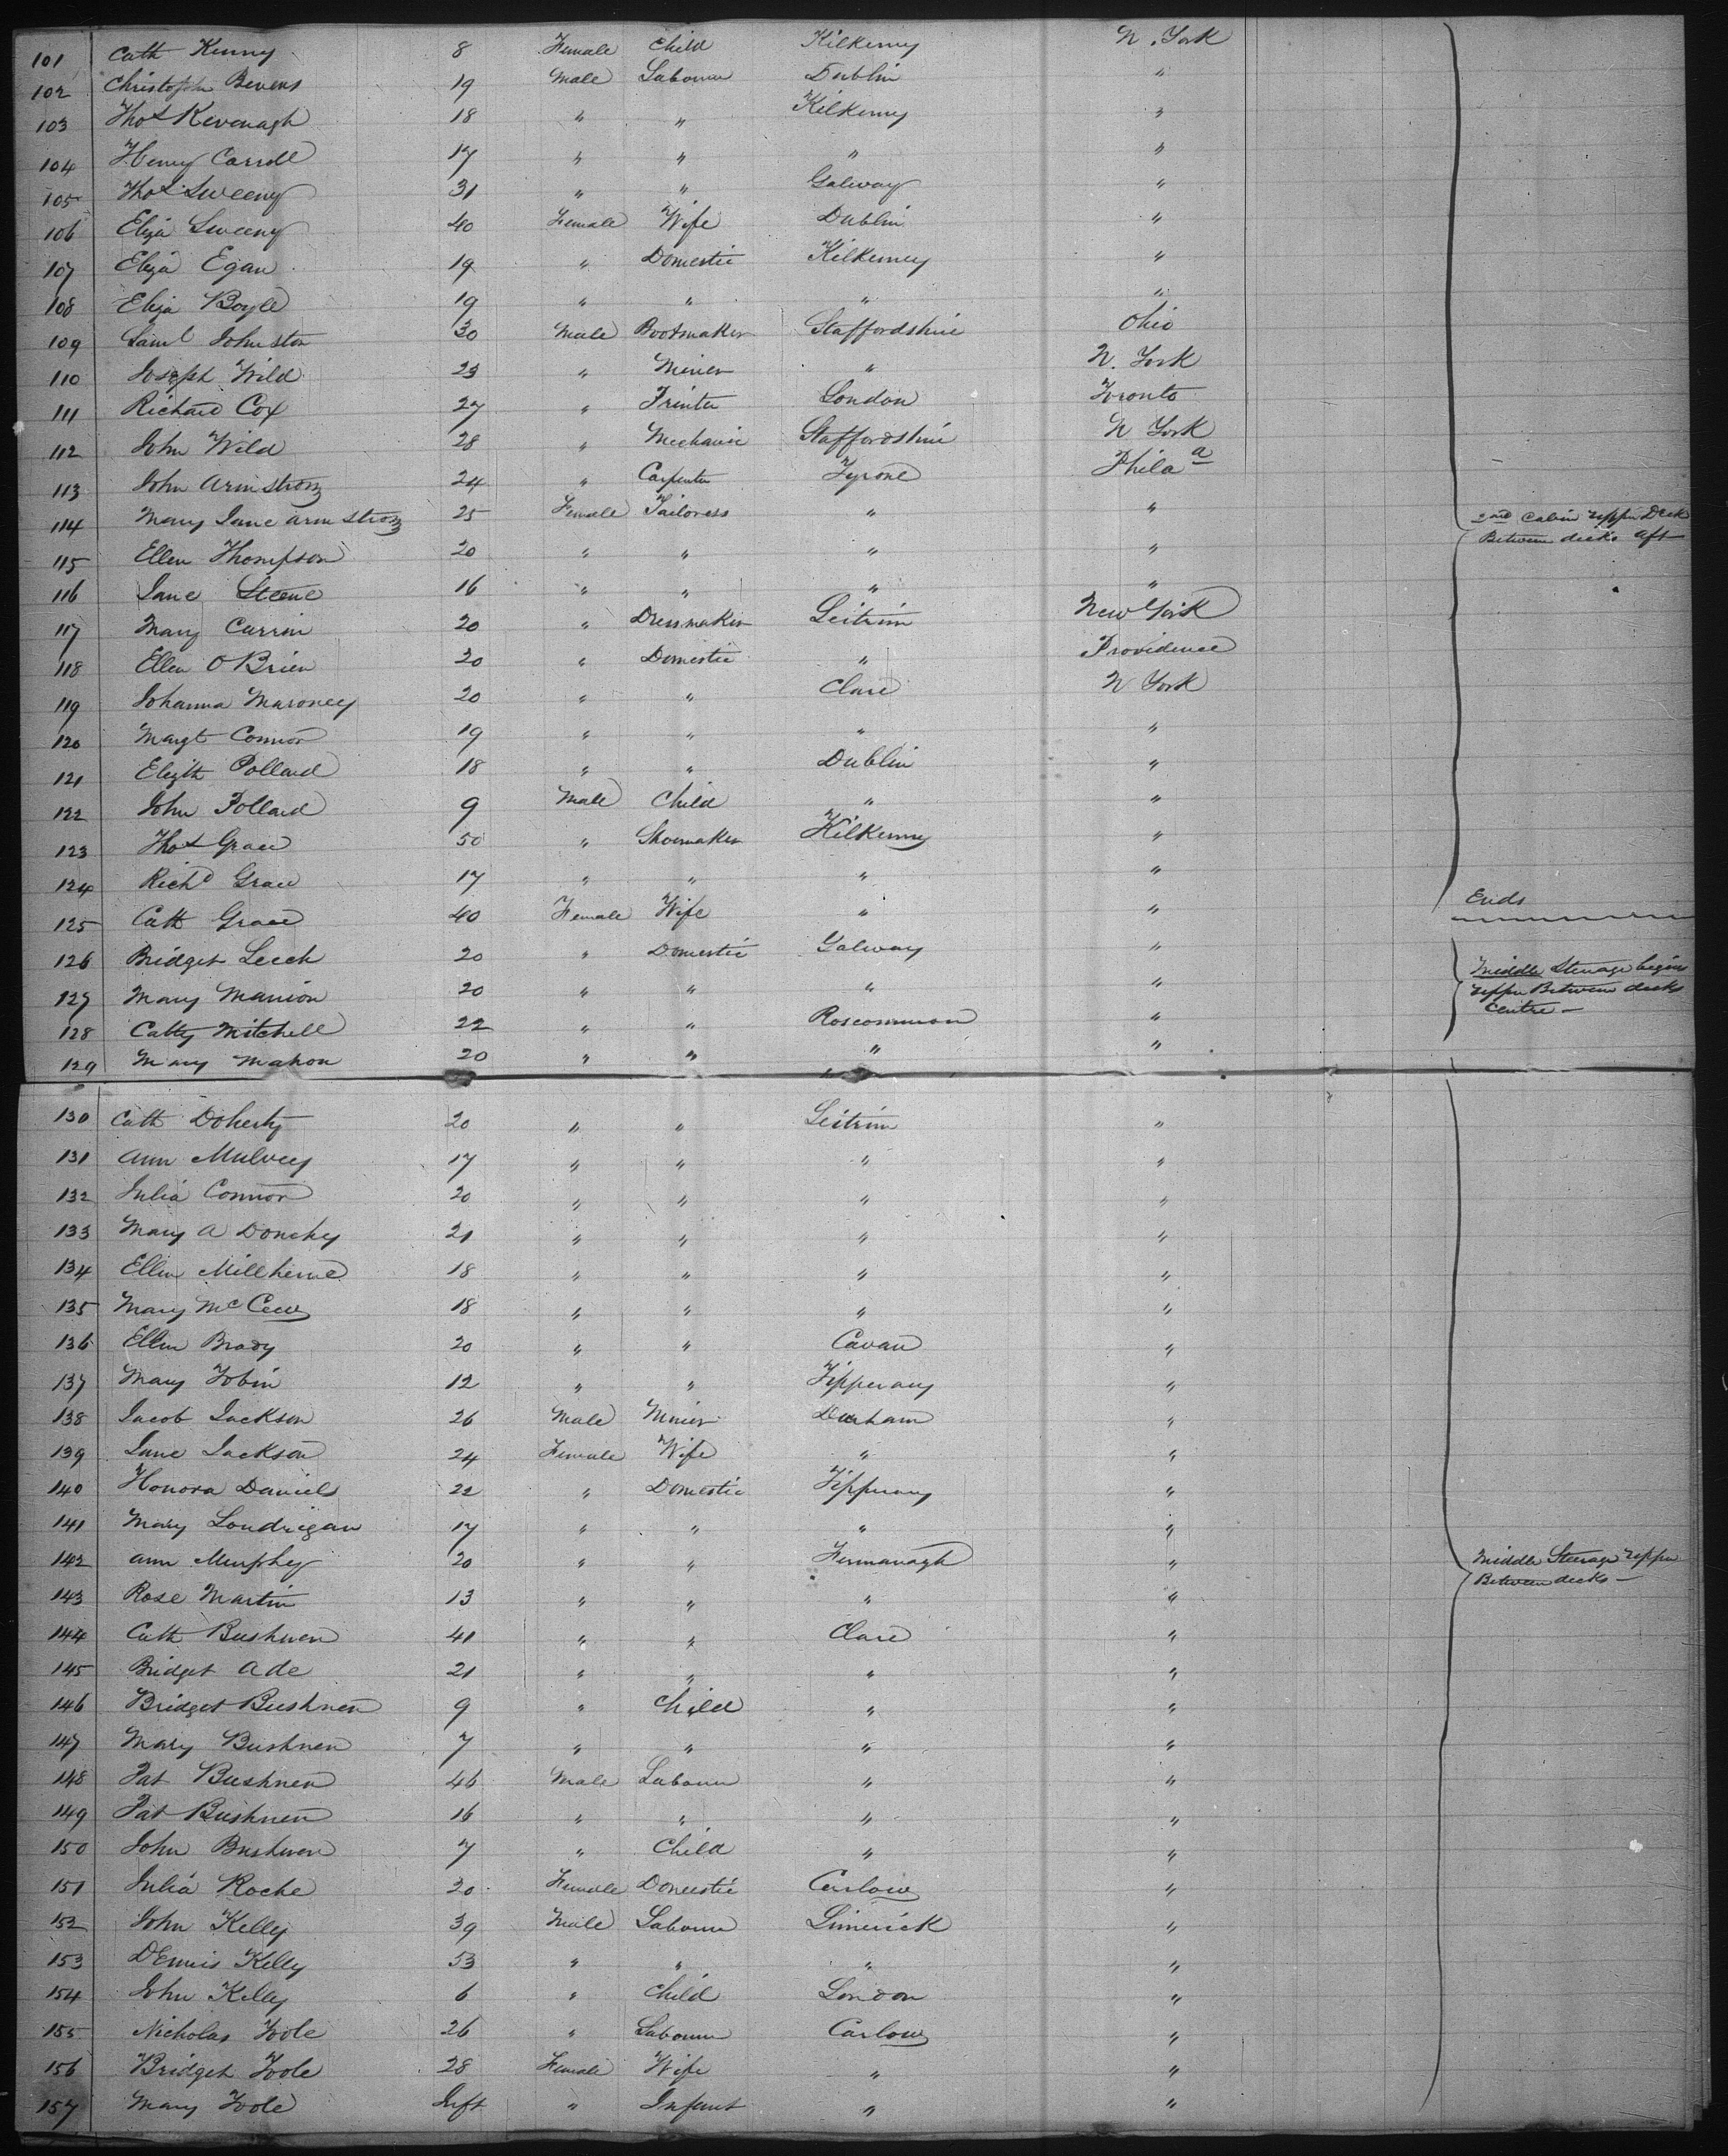 101 Cath Kenny 8 Female Child Kilkenny N. York
102 Christopher Bevens 19 Male Labourer Dublin "
103 Thos Kevenagh 18 " " Kilkenny "
104 Henry Carroll 17 " " " "
105 Thos Sweeny 31 " " Galway "
106 Eliza Sweeny 40 Female Wife Dublin "
107 Eliza Egan 19 " Domestic Kilkenny "
108 Eliza Boyle 19 " " " "
109 Saml Johnston 30 Male Bootmaker Staffordshire Ohio
110 Joseph Wild 23 " Miner " N. York
111 Richard Cox 27 " Printer London Toronto
112 John Wild 28 " Mechanic Staffordshire N York
113 John Armstrong 24 " Carpenter Tyrone Phila
114 Mary Jane Armstrong 25 Female Tailoress " "
2nd Cabin upper Deck
Between decks aft
115 Ellen Thompson 20 " " " "
116 Jane Steene 16 " " " "
117 Mary Currin 20 " Dressmaker Leitrim New York
118 Ellen O Brien 20 " Domestic " Providence
119 Johanna Maroney 20 " " Clare N York
120 Margt Connor 19 " " " "
121 Elizth Pollard 18 " " Dublin "
122 John Pollard 9 Male Child " "
123 Thos Grace 50 " Shoemaker Kilkenny "
124 Richd Grace 17 " " " "
125 Cath Grace 40 Female Wife " "
Ends
126 Bridget Leech 20 " Domestic Galway "
127 Mary Manion 20 " " " "
Middle Steerage begins
upper Between decks
Centre -
128 Catty Mitchell 22 " " Roscommon "
129 Mary Mahon 20 " " " "
130 Cath Doherty 20 " " Leitrim "
131 Ann Mulvey 17 " " " "
132 Julia Connor 20 " " " "
133 Mary A Donohy 21 " " " "
134 Ellen 18 " " " "
135 Mary 18 " " " "
136 Ellen Brady 20 " " Cavan "
137 Mary Tobin 12 " " Tipperary "
138 Jacob Jackson 26 Male Miner Durham "
139 Jane Jackson 24 Female Wife " "
140 Honora Daniels 22 " Domestic Tipperary "
141 Mary Londrigan 17 " " " "
142 Ann Murphy 20 " " Fermanagh "
Middle Steerage upper
Between decks -
143 Rose Martin 13 " " " "
144 Cath Bushnen 41 " " Clare "
145 Bridget Ade 21 " " " "
146 Bridget Bushnen 9 " Child " "
147 Mary Bushnen 7 " " " "
148 Pat Bushnen 46 Male Labourer " "
149 Pat Bushnen 16 " " " "
150 John Bushnen 7 " Child " "
151 Julia Roche 20 Female Domestic Carlow "
152 John Kelly 39 Male Labourer Limerick "
153 Dennis Kelly 53 " " " "
154 John Kelly 6 " Child London "
155 Nicholas Toole 26 " Labourer Carlow "
156 Bridget Toole 28 Female Wife " "
157 Mary Toole Inft " Infant " "